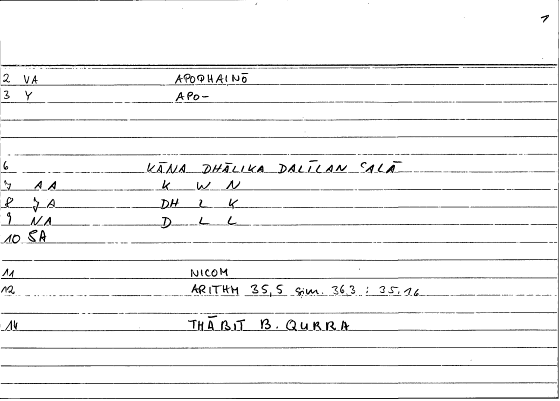 1
2 VA APOPHAINŌ
3 Y APO-
6 KĀNA DHĀLIKA DALĪLAN ʿALĀ
7 AA K W N
8 JA DH L K
9 NA D L L
10 SA
11 NICOM
12 ARITHM 35,5 sim. 36,3 : 35,16
14 THĀBIT B. QURRA